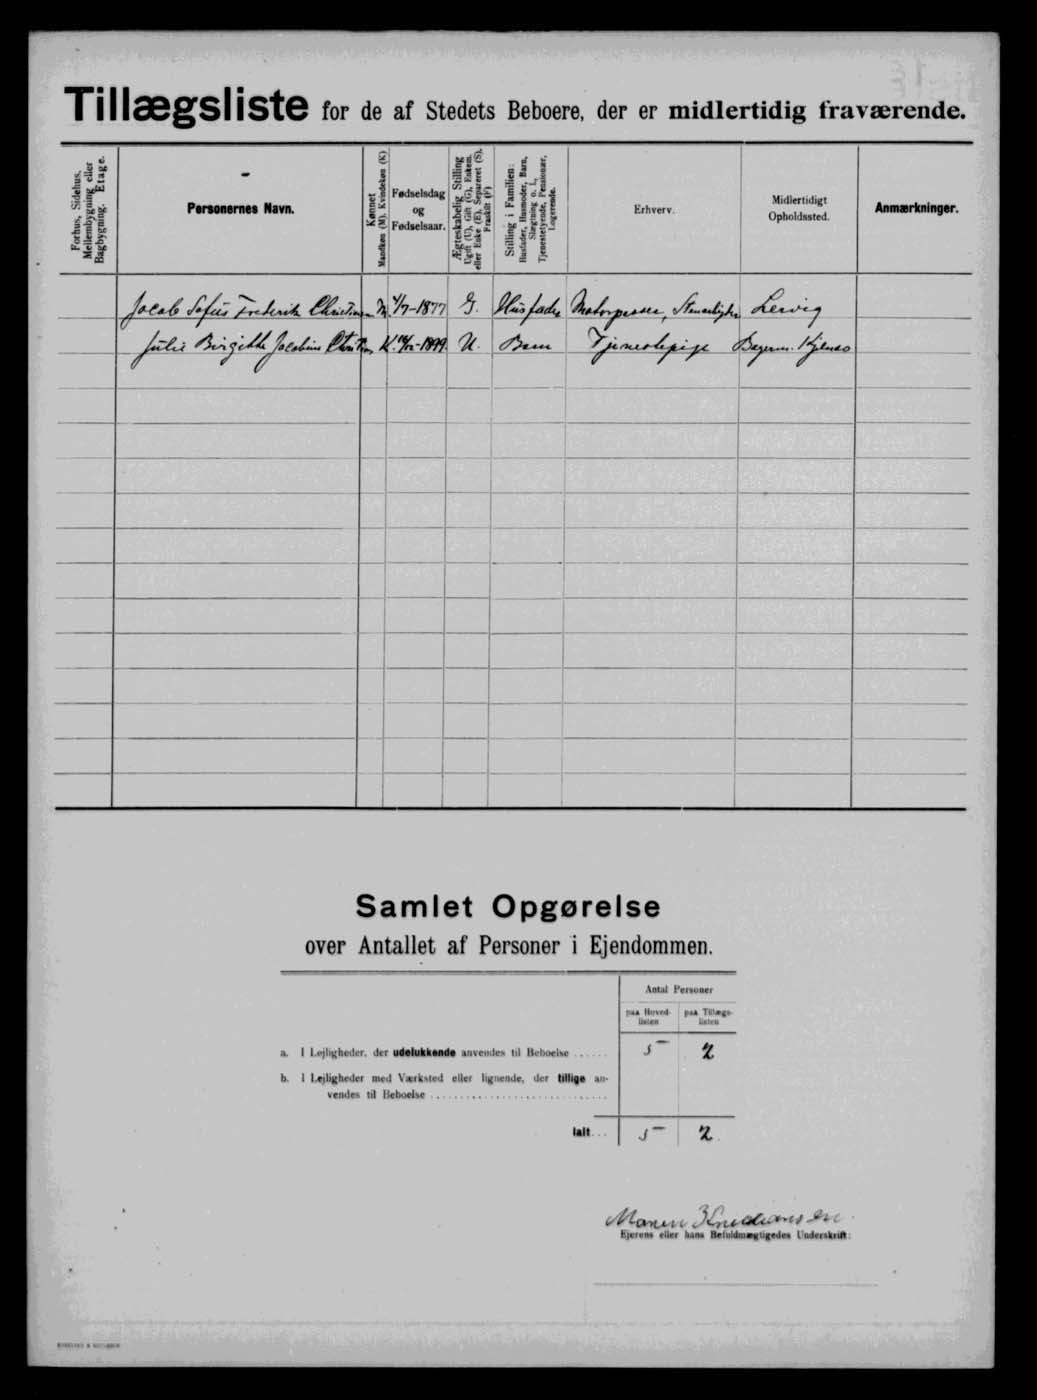 Tillægsliste for de af Stedets Beboere, der er midlertidig fraværende.
Forhus, Sidehus, Mellembygning eller Bagbygning. Etage.
Personernes Navn.
Kønnet
Mandkøn (M), Kvindekøn (K)
Fødselsdag og Fødselsaar.
Ægteskabelig Stilling
Ugift (U), Gift (G), Enkem. eller Enke (E), Separeret (S), Fraskilt (F)
Stilling i Familien:
Husfader, Husmoder, Barn, Slægtning o. l., Tjenestetyende, Pensionær, Logerende.
Erhverv.
Midlertidigt Opholdssted.
Anmærkninger.
Jacob Sofus Frederik M 4/7-1877 G. Husfader Lervig
Julie Birgitte Jacobine K. 1899 U. Barn Tjenestepige
Samlet Opgørelse
over Antallet af Personer i Ejendommen.
Antal Personer
paa Hoved-listen
paa Tillægs-listen
a. I Lejligheder, der udelukkende anvendes til Beboelse ...... 5 2
b. I Lejligheder med Værksted eller lignende, der tillige an-
vendes til Beboelse ..............................
Ialt... 5 2
Maren
Ejerens eller hans Befuldmægtigedes Underskrift: